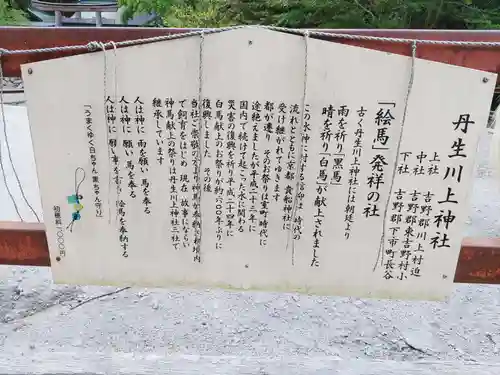 丹生川上神社
上社 吉野郡川上村迫
中社 吉野郡東吉野村小
下社 吉野郡下市町長谷
「絵馬」発祥の社
古く丹生川上神社には朝廷より
雨を祈り「黒馬」
晴を祈り「白馬」が献上されました
この水神に対する信仰は 時代の
流れとともに京都 貴船神社に
受け継がれてゆきます
都が遷り そのお祭りは室町時代に
途絶えましたが平成二十三年に
国内で続けて起こった水に関わる
災害の復興を祈り平成二十四年に
白馬献上のお祭りが約六〇〇年ぶりに
復興しました その後
当社ご崇敬の方より神馬の奉納を受け境内
にて飼育をはじめ 現在 故事にならい
神馬献上の祭りは丹生川上神社三社で
継承しています
人は神に 雨を願い 馬を奉る
人は神に 願い 馬を奉る
人は神に 願い事を寄せ 絵馬を奉納する
「うまくゆく白ちゃん黒ちゃん守り」
初穂料 1000円